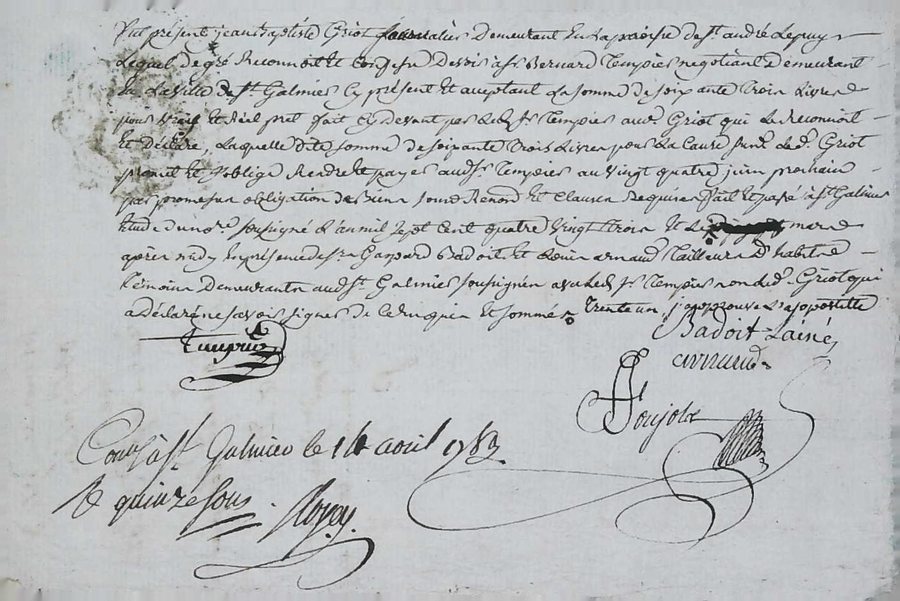 fut présent jean Baptiste Griot journalier demeurant en La paroisse de St. andré Le puy
Lequel de gré Reconnoit Et Confesse Devoir a Sr. Bernard Tempier negotiant demeurant
en La ville de St. Galmier Cy présent et acceptant La somme de soixante trois Livres
pour vray Et Réel pret fait Cy devant par Led. Sr. Tempier aud. Griot qui Le Reconnoit
Et déclare, Laquelle ditte somme de soixante trois Livres pour La Cause Led. Griot
promet Et s'oblige Rendre Et payer aud. Sr. Tempier au vingt quatre juin prochain
par promesse obligation de biens soum. Renond. Et Clauses Requises fait Et passé a St. Galmier
Etude du no.re soussigné L'an mil sept Cent quatre vingt trois Et Le mars
après midy En présence de Sr. Gaspard Badoit Et arnaud Tailleur d'habits
témoins demeurants aud. St. Galmier soussignés avec led. Sr. Tempier non led. Griot qui
a déclaré ne savoir signer de Ce Enquis Et sommé. trente un j'approuve L'apostille
Badoit Lainé
Tempier
arnaud
Poujol
Con.lé a St. Galmier le 14 avril 1783
R quinze sous.